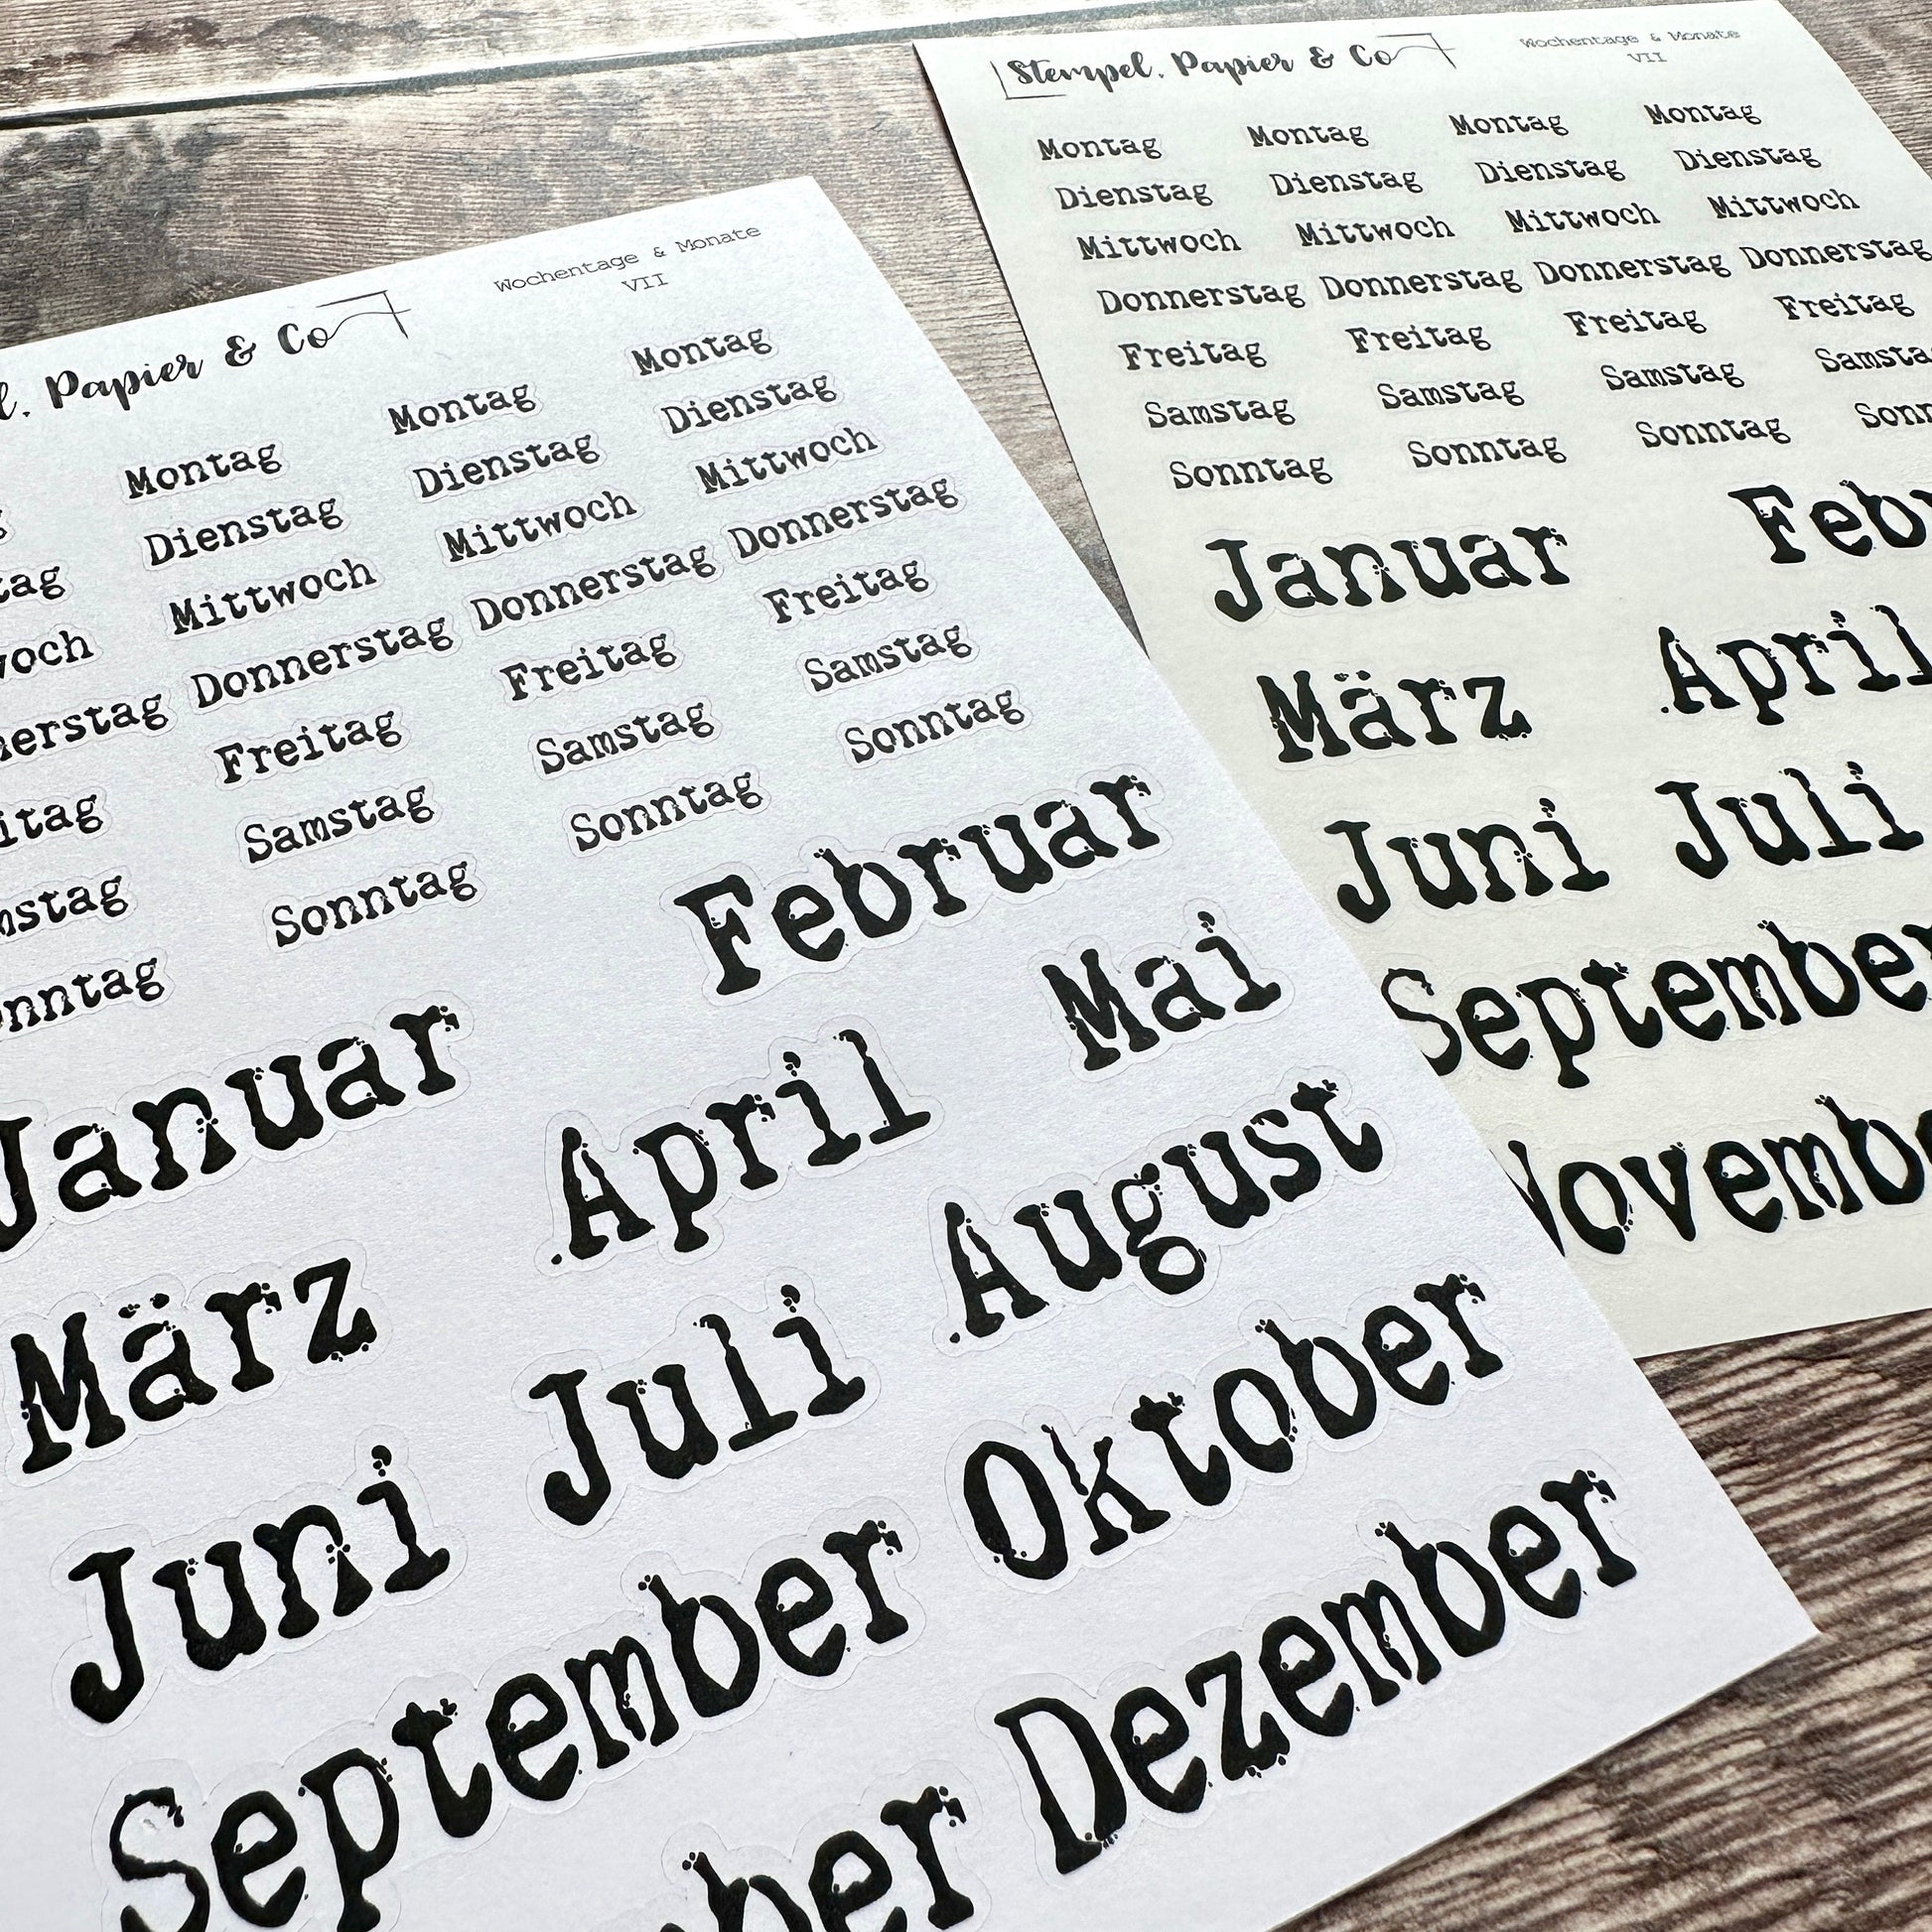 Papier & Co
Wochentage & Monate
VII
Montag Montag Montag
Dienstag Dienstag Dienstag
Mittwoch Mittwoch Mittwoch
Donnerstag Donnerstag Donnerstag
Freitag Freitag Freitag
Samstag Samstag Samstag
Sonntag Sonntag Sonntag
Januar Februar
März April Mai
Juni Juli August
September Oktober
Dezember
Stempel, Papier & Co
Wochentage & Monate
VII
Montag Montag Montag Montag
Dienstag Dienstag Dienstag Dienstag
Mittwoch Mittwoch Mittwoch Mittwoch
Donnerstag Donnerstag Donnerstag Donnerstag
Freitag Freitag Freitag Freitag
Samstag Samstag Samstag
Sonntag Sonntag Sonntag
Januar
März April
Juni Juli
September